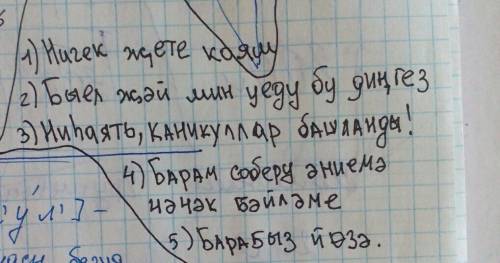 1) Ничек җете каям
2) Быел җәй мин уеду бу диңгез
3) Ниһаять, каникуллар башланды!
4) Барам соберу әниемә
чәчәк бәйләме
[' ý л' ] –
5) Барабыз йөзә.